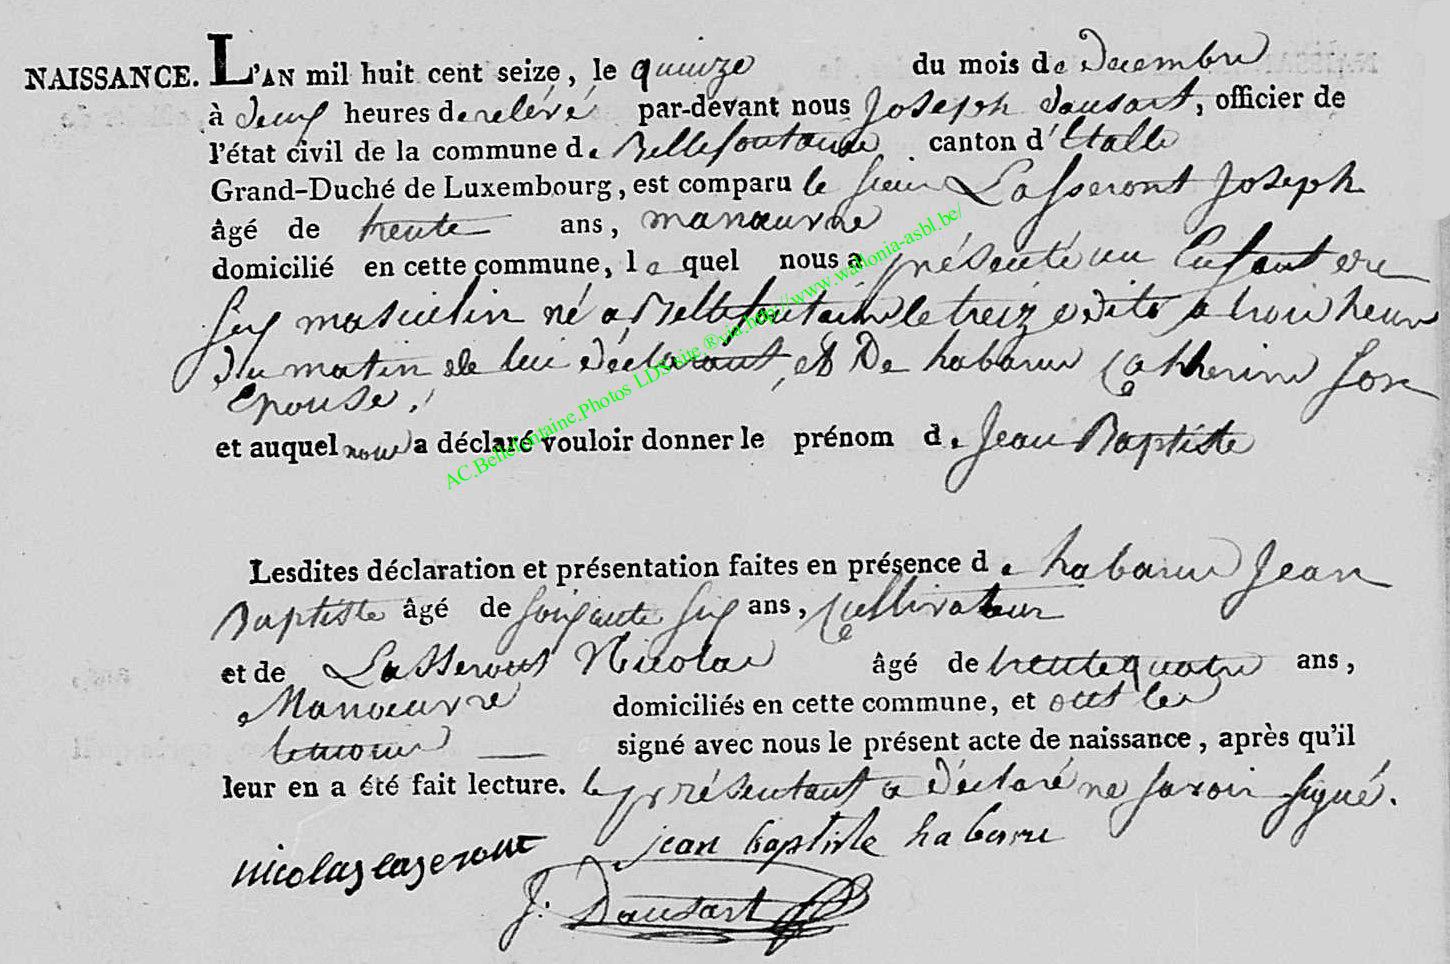 NAISSANCE. L'AN mil huit cent seize, le quinze du mois de Decembre
à deux heures de relévé par-devant nous Joseph dausart, officier de
l'état civil de la commune de Bellefontaine canton d'Etalle
Grand-Duché de Luxembourg, est comparu le sieur Lasseront Joseph
âgé de trente ans, manœuvre
domicilié en cette commune, le quel nous a présenté un Enfant
sex masculin né a Bellefontaine le treize dito a trois heures
du matin de lui déclarant, et De habaru Catherine son
Epouse,
et auquel nous a déclaré vouloir donner le prénom de Jean Baptiste
Lesdites déclaration et présentation faites en présence de habaru Jean
Baptiste âgé de soixante six ans, Cultivateur
et de Lasseront Nicolas âgé de trente quatre ans,
Manœuvre domiciliés en cette commune, et ont les
temoins signé avec nous le présent acte de naissance, après qu'il
leur en a été fait lecture. le présentant a déclaré ne savoir signé.
jean baptiste habaru
nicolas laseront
J. Dausart
AC.Bellefontaine.Photos LDS site ® via http://www.wallonia-asbl.be/